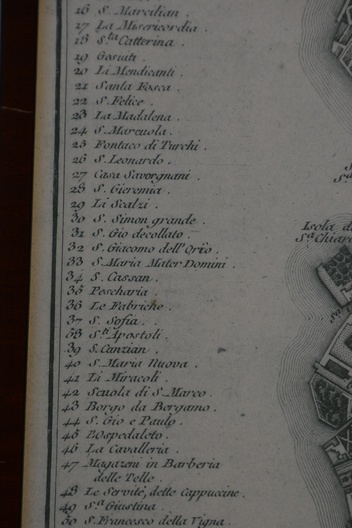 16 S. Marcilian .
17 La Misericordia .
18 S.ta Catterina .
19 Gesuiti .
20 Li Mendicanti .
21 Santa Fosca .
22 S. Felice .
23 La Madalena .
24 S. Marcuola .
25 Fontaco di Turchi .
26 S. Leonardo .
27 Casa Savorgnani .
28 S. Gieremia .
29 Li Scalzi .
30 S. Simon grande .
31 S. Gio decollato .
32 S. Giacomo dell'Orio .
33 S. Maria Mater Domini .
34 S. Cassan .
35 Pescharia
36 Le Fabriche .
37 S. Sofia .
38 S.ti Apostoli .
39 S. Canzian .
40 S. Maria Nuova .
41 Li Miracoli .
42 Scuola di S. Marco .
43 Borgo da Bergamo .
44 S. Gio e Paulo .
45 L'Ospedaleto .
46 La Cavalleria .
47 Magazeni in Barberia
delle Telle .
48 Le Servite, dette Cappuccine .
49 S.a Giustina .
50 S. Francesco della Vigna .
Isola di
S.a Chiara